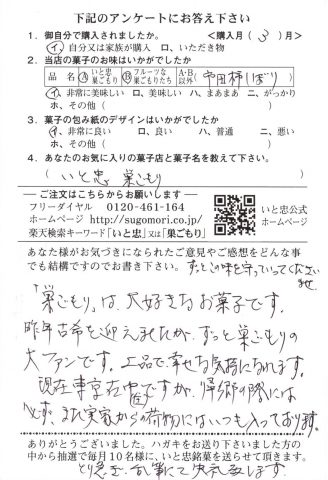 下記のアンケートにお答え下さい
1．御自分で購入されましたか。 ＜購入月（ 3 ）月＞
（ イ、自分又は家族が購入 ロ、いただき物
2．当店の菓子のお味はいかがでしたか
品 名 Ⓐいと忠巣ごもり Ⓑフルーツな巣ごもりたち A・B以外 市田柿しぼり
イ、非常に美味しい ロ、美味しい ハ、まあまあ ニ、がっかり
ホ、その他（ ）
3．菓子の包み紙のデザインはいかがでしたか
イ、非常に良い ロ、良い ハ、普通 ニ、悪い
ホ、その他（ ）
4．あなたのお気に入りの菓子店と菓子名を教えて下さい。
（ いと忠 巣ごもり ）
ご注文はこちらからお願いします
フリーダイヤル 0120-461-164
ホームページ http://sugomori.co.jp/
楽天検索キーワード「いと忠」又は「巣ごもり」
いと忠公式
ホームページ
あなた様がお気づきになられたご意見やご感想をどんな事
でも結構ですのでお書き下さい。 ずっとこの味を守っていってください
ませ
「巣ごもり」は、大好きなお菓子です。
昨年古希を迎えましたが、ずっと巣ごもりの
大ファンです。上品で、幸せな気持になれます。
現在東京在中(住)ですが、帰郷の際には
必ず、また実家からの荷物にはいつも入っております。
ありがとうございました。ハガキをお送り下さいました方の
中から抽選で毎月10名様に、いと忠銘菓を送らせて頂きます。
とり急ぎ、乱筆にて失礼致します。